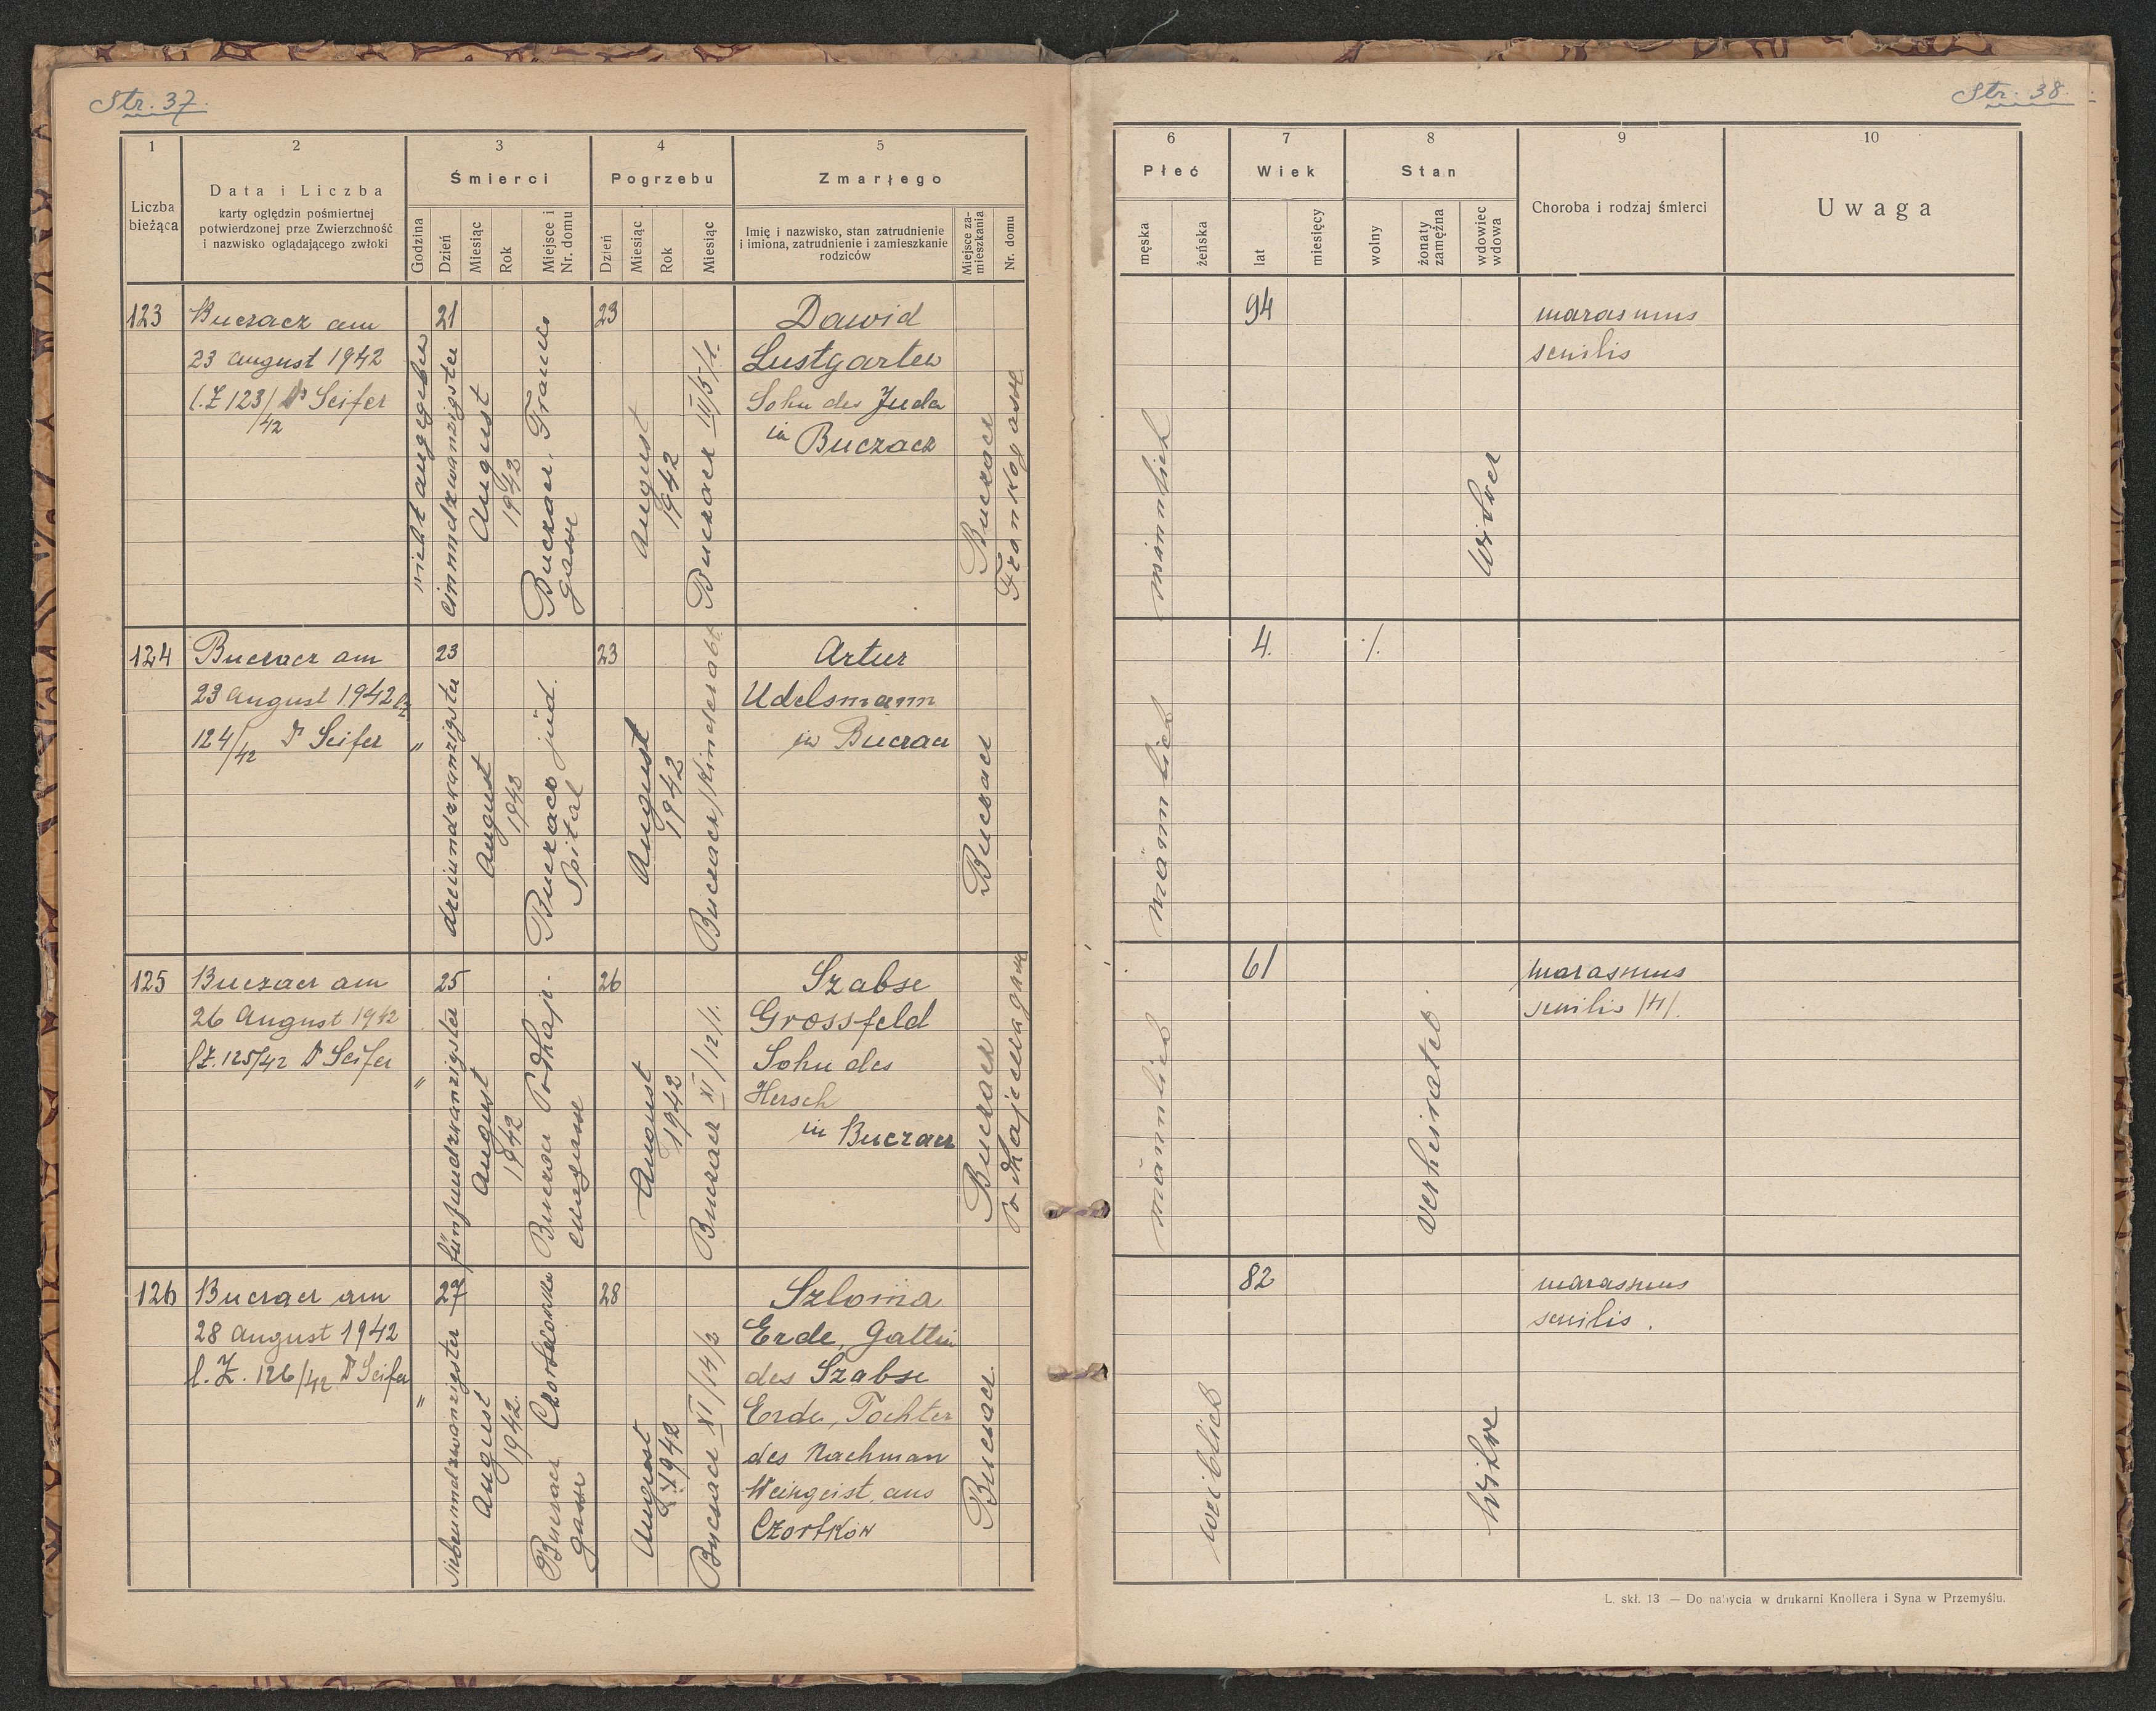 Str. 37.
1
2
3
4
5
Liczba bieżąca
Data i Liczba
karty oględzin pośmiertnej
potwierdzonej prze Zwierzchność
i nazwisko oglądającego zwłoki
Śmierci
Godzina
Dzień
Miesiąc
Rok
Miejsce i Nr. domu
Pogrzebu
Dzień
Miesiąc
Rok
Miesiąc
Zmarłego
Imię i nazwisko, stan zatrudnienie
i imiona, zatrudnienie i zamieszkanie
rodziców
Miejsce zamieszkania
Nr. domu
123
Buczacz am
23 august 1942
l.Z 123/42 Dr Seifer
nicht angegeben
21
einundzwanzigster
August
1942
Buczacz, Franko
gasse
23
August
1942
Buczacz III/5/1.
Dawid
Lustgarten
Sohn des Juda
in Buczacz
Buczacz
Frankogasse
124
Buczacz am
23 august 1942 lZ
124/42 Dr Seifer
"
23
dreiundzwanzigster
August
1942
Buczacz jüd.
Spital
23
August
1942
Buczacz/Kinderabt.
Artur
Udelsmann
in Buczacz
Buczacz
125
Buczacz am
26 August 1942
lZ. 125/42 Dr Seifer
"
25
fünfundzwanzigster
August
1942
Buczacz Podhaje-
cungasse
26
August
1942
Buczacz XI/12/1.
Szabse
Grossfeld
Sohn des
Hersch
in Buczacz
Buczacz
Podhajcungasse
126
Buczacz am
28 August 1942
l.Z. 126/42 Dr Seifer
"
27
siebenundzwanzigster
August
1942
Buczacz Czortkowska
gasse
28
August
1942
Buczacz XI/14/2
Szloma
Erde, Gattin
des Szabse
Erde, Tochter
des Nachman
Weingeist aus
Czortków
Buczacz
Str. 38.
6
7
8
9
10
Płeć
męska
żeńska
Wiek
lat
miesięcy
Stan
wolny
żonaty zamężna
wdowiec wdowa
Choroba i rodzaj śmierci
Uwaga
männlich
94
Witwer
marasmus
senilis
männlich
4.
·/.
männlich
61
verheiratet.
marasmus
senilis /H/.
weiblich
82
Witwe
marasmus
senilis.
L. skł. 13 — Do nabycia w drukarni Knollera i Syna w Przemyślu.